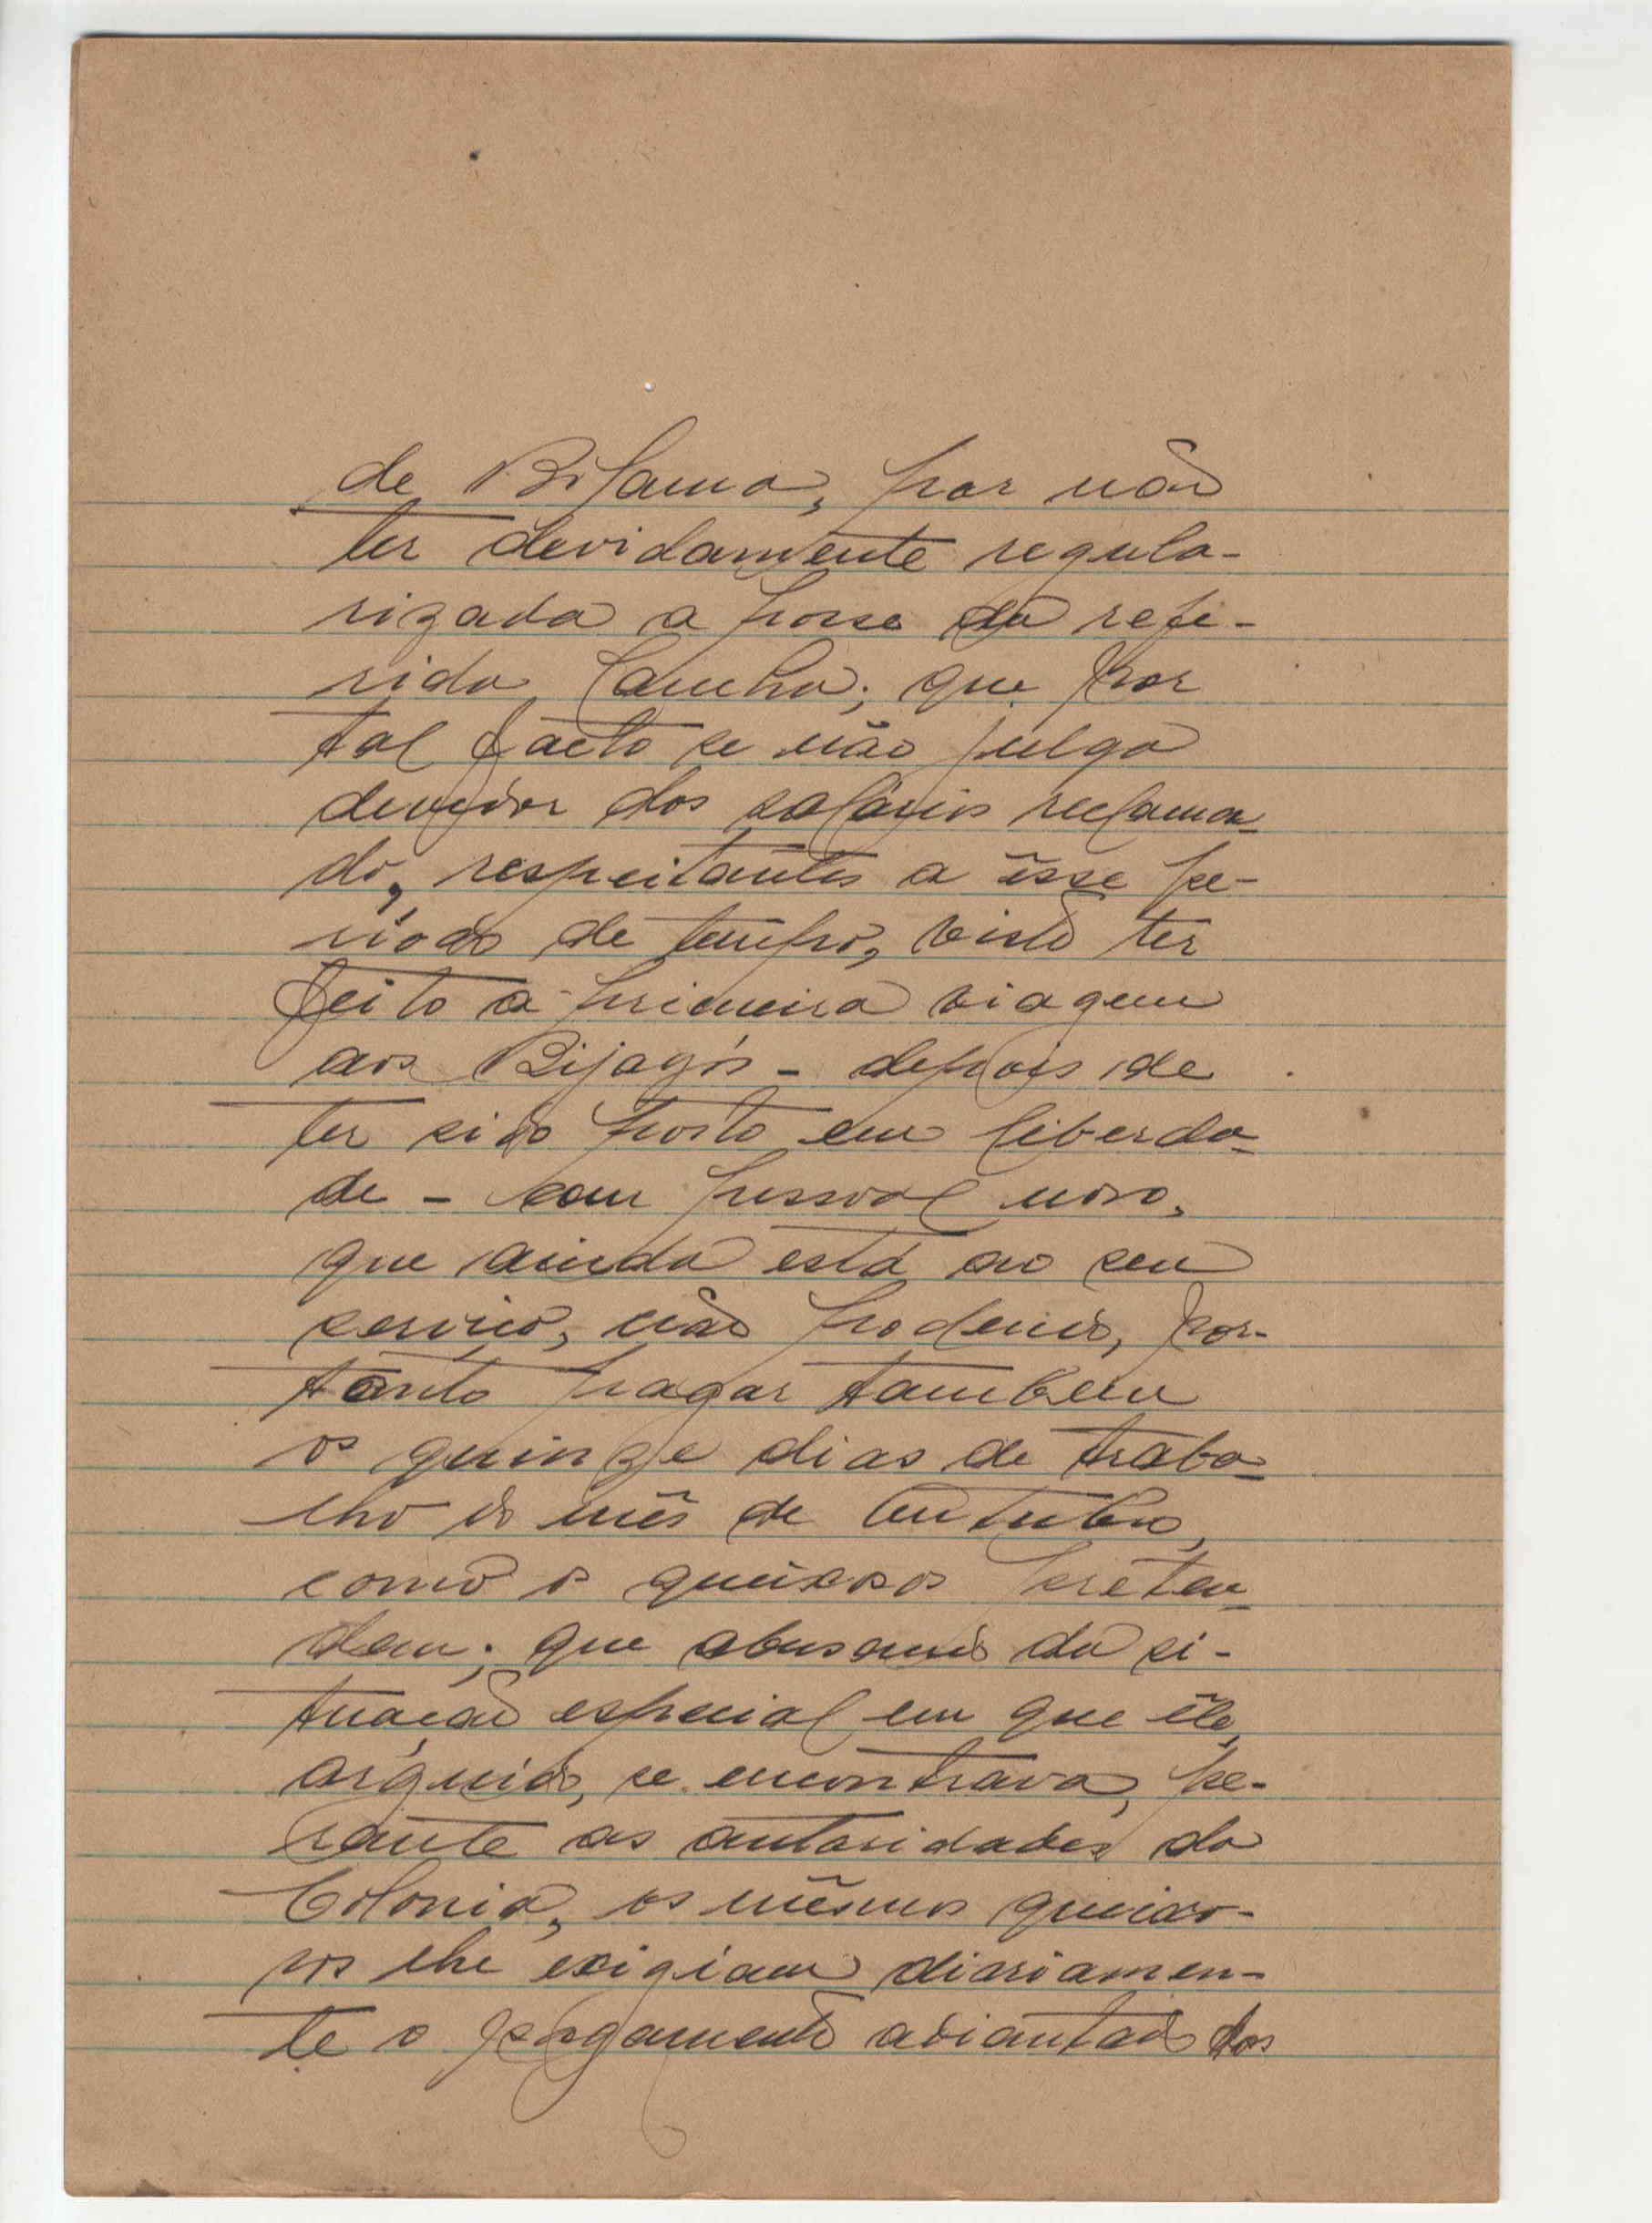 de Bolama, por não
ter devidamente regula-
rizada a posse da refe-
rida lancha; que por
tal facto se não julga
devedor dos salários reclama-
do, respeitantes a êsse pe-
riodo de tempo, visto ter
feito a primeira viagem
aos Bijagós - depois de
ter sido posto em liberda-
de - com pessoal novo,
que ainda está ao seu
serviço, não podendo, por-
tanto pagar tambem
os quinze dias de traba-
lho do mês de Outubro,
como os queixosos preten-
dem; que abusando da si-
tuação especial em que êle,
arguido, se encontrava, pe-
rante as autoridades da
Colonia, os mêsmos queixo-
sos lhe exigiam diariamen-
te o pagamento adiantado dos